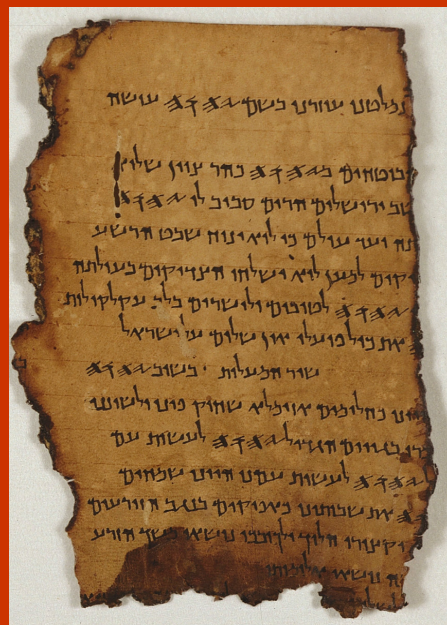 נמלטנו עזרנו בשם 𐤉𐤄𐤅𐤄 עושה
הבוטחים ב𐤉𐤄𐤅𐤄 כהר ציון שלוא
ירושלים הרים סביב לו 𐤉𐤄𐤅𐤄
ועד עולם כי לוא ינוח שבט הרשע
למען לוא ישלחו הצדיקים בעולתה
𐤉𐤄𐤅𐤄 לטובים ולישרים בלב עקלקולות
את כול פועלי און שלום על ישראל
שיר המעלות בשוב 𐤉𐤄𐤅𐤄
כחלומים אז ימלא שחוק פינו ולשוננו
בגויים הגדיל 𐤉𐤄𐤅𐤄 לעשות עם
𐤉𐤄𐤅𐤄 לעשות עמנו היינו שמחים
את שבותנו כאפיקים בנגב הזורעים
יקצורו הלוך ילך ובכו נושא משך הזרע
נושא